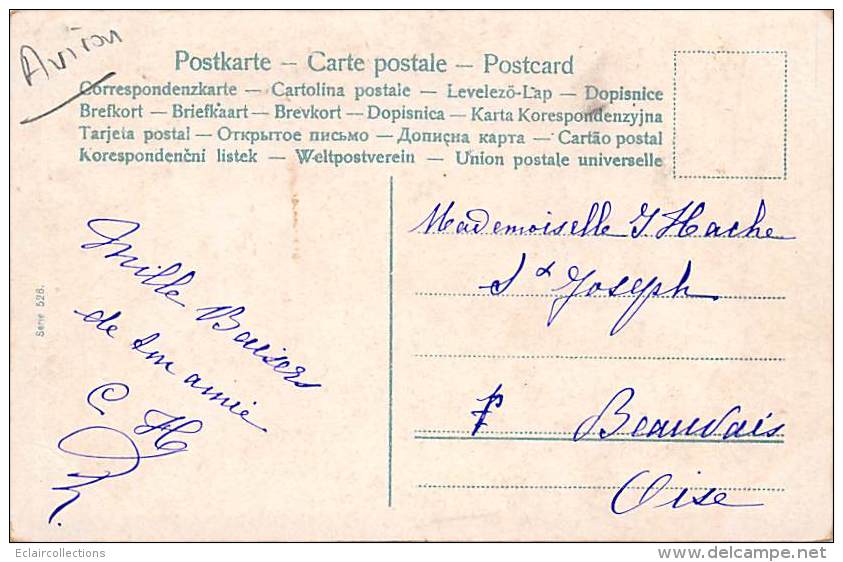 Avion
Postkarte – Carte postale – Postcard
Correspondenzkarte – Cartolina postale – Levelező-Lap – Dopisnice
Brefkort – Briefkaart – Brevkort – Dopisnica – Karta Korespondenzyjna
Tarjeta postal – Открытое письмо – Дописна карта – Cartão postal
Korespondenční listek – Weltpostverein – Union postale universelle
Mademoiselle J Hache
St Joseph
Beauvais
Oise
Mille Baisers
de ton amie
C H
Serie 528.
Eclaircollections
delcampe.net